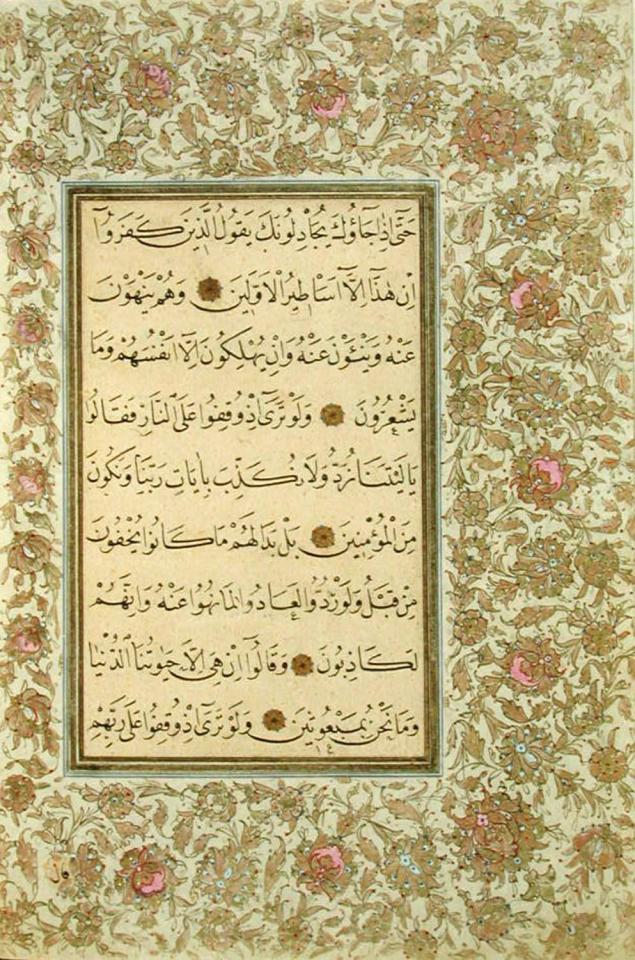 حَتّٰى اِذَا جَاؤُكَ يُجَادِلُونَكَ يَقُولُ الَّذِينَ كَفَرُوٓا
اِنْ هٰذَٓا اِلَّٓا اَسَاطِيرُ الْاَوَّلِينَ وَهُمْ يَنْهَوْنَ
عَنْهُ وَيَنْـَٔوْنَ عَنْهُ وَاِنْ يُهْلِكُونَ اِلَّٓا اَنْفُسَهُمْ وَمَا
يَشْعُرُونَ وَلَوْ تَرٰٓى اِذْ وُقِفُوا عَلَى النَّارِ فَقَالُوا
يَا لَيْتَنَا نُرَدُّ وَلَا نُكَذِّبَ بِاٰيَاتِ رَبِّنَا وَنَكُونَ
مِنَ الْمُؤْمِنِينَ بَلْ بَدَا لَهُمْ مَا كَانُوا يُخْفُونَ
مِنْ قَبْلُ وَلَوْ رُدُّوا لَعَادُوا لِمَا نُهُوا عَنْهُ وَاِنَّهُمْ
لَكَاذِبُونَ وَقَالُٓوا اِنْ هِىَ اِلَّا حَيٰوتُنَا الدُّنْيَا
وَمَا نَحْنُ بِمَبْعُوثِينَ وَلَوْ تَرٰٓى اِذْ وُقِفُوا عَلٰى رَبِّهِمْ
قال